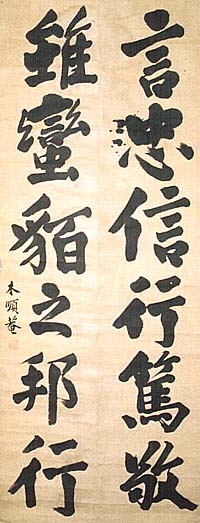 言忠信行篤敬
雖蠻貊之邦行
木順菴